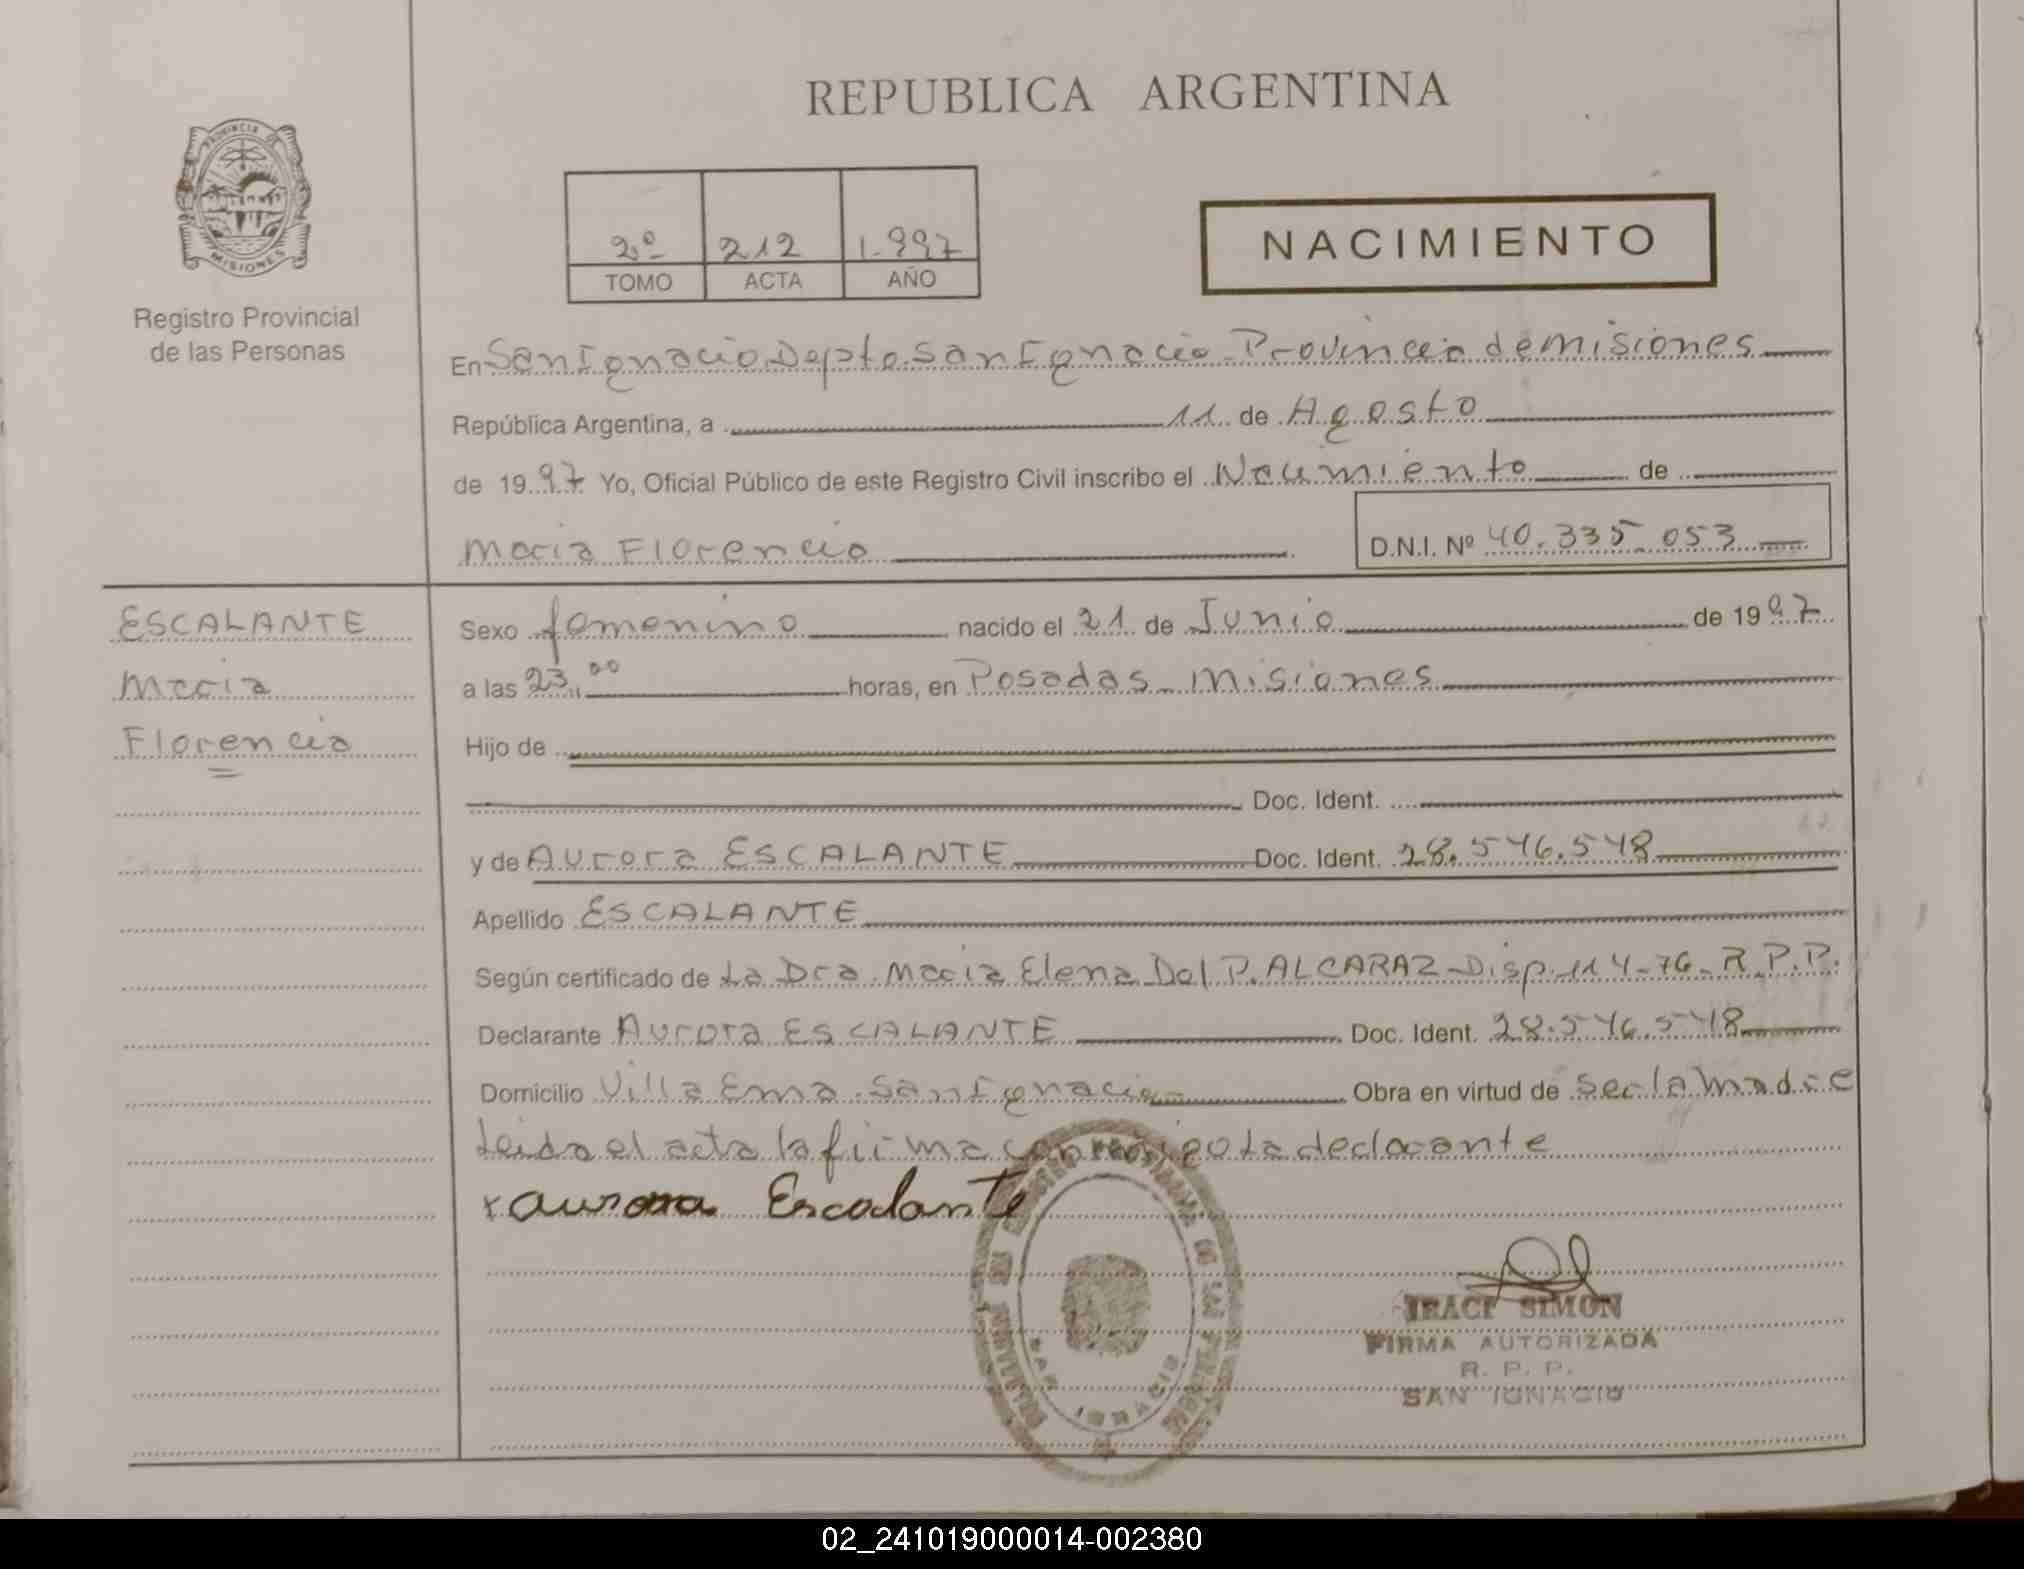 REPUBLICA ARGENTINA
PROVINCIA DE
MISIONES
Registro Provincial
de las Personas
2º 212 1.997
TOMO ACTA AÑO
NACIMIENTO
En San Ignacio Depto. San Ignacio Provincia de misiones
República Argentina, a 11 de Agosto
de 1997 Yo, Oficial Público de este Registro Civil inscribo el Nacimiento de
Maria Florencia
D.N.I. Nº 40.335.053
ESCALANTE
Maria
Florencia
Sexo femenino nacido el 21 de Junio de 1997
a las 23,00 horas, en Posadas - Misiones
Hijo de
Doc. Ident.
y de Aurora ESCALANTE Doc. Ident. 28.546.548
Apellido ESCALANTE
Según certificado de La Dra. Maria Elena Del P. ALCARAZ - Disp. 114-76- R.P.P.
Declarante Aurora ESCALANTE Doc. Ident. 28.546.548
Domicilio Villa Ema - San Ignacio Obra en virtud de Ser la Madre
Leida el acta la firma conmigo La declarante
x aurora Escalante
IRACI SIMON
FIRMA AUTORIZADA
R. P. P.
SAN IGNACIO
SAN IGNACIO
02_241019000014-002380